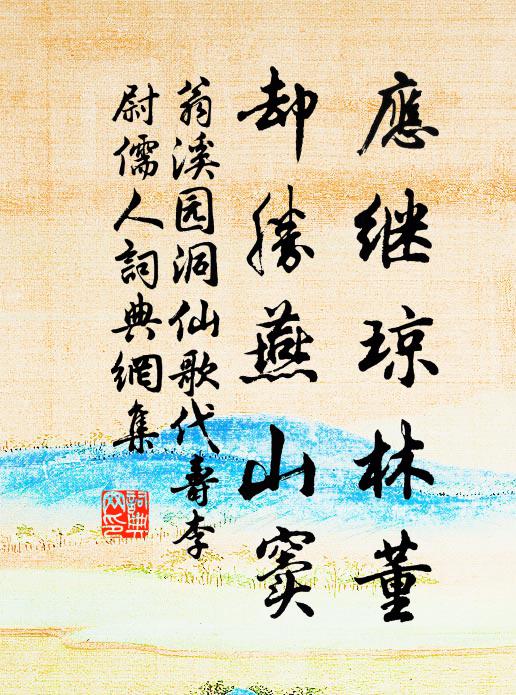 應继琼林董
却勝燕山窦
翁溪园洞仙歌代壽李
尉儒人詞典網集